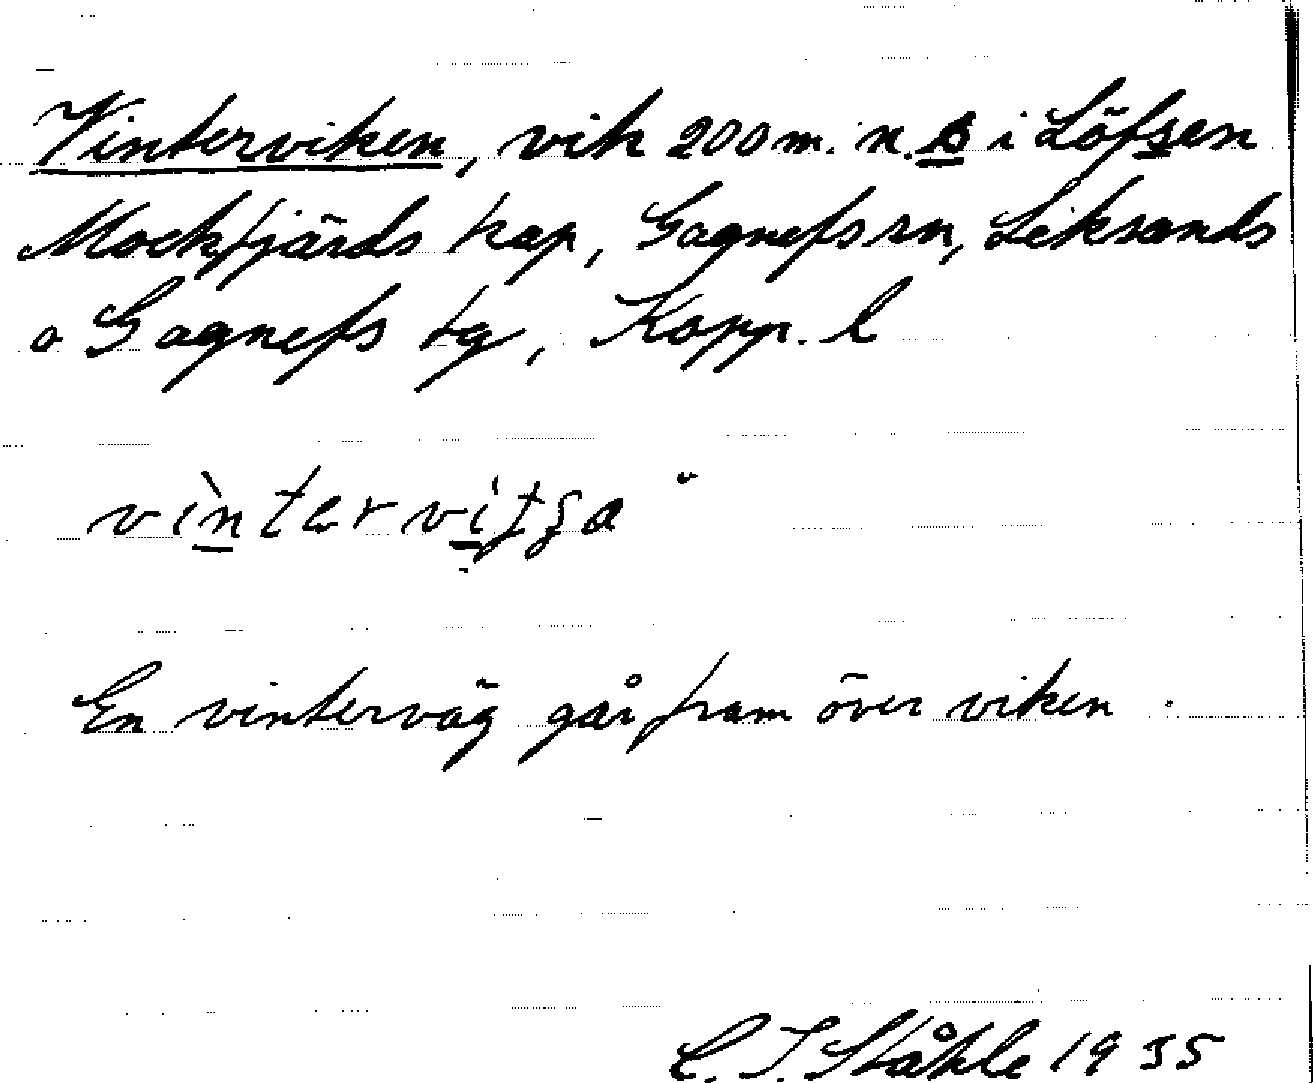 Vinterviken, vik 200 m. n. B i Löfsen
Mockfjärds kap, Gagnefs sn, Leksands
o Gagnefs tg, Kopp. l
En vinterväg går fram över viken.
C. I. Ståhle 1935